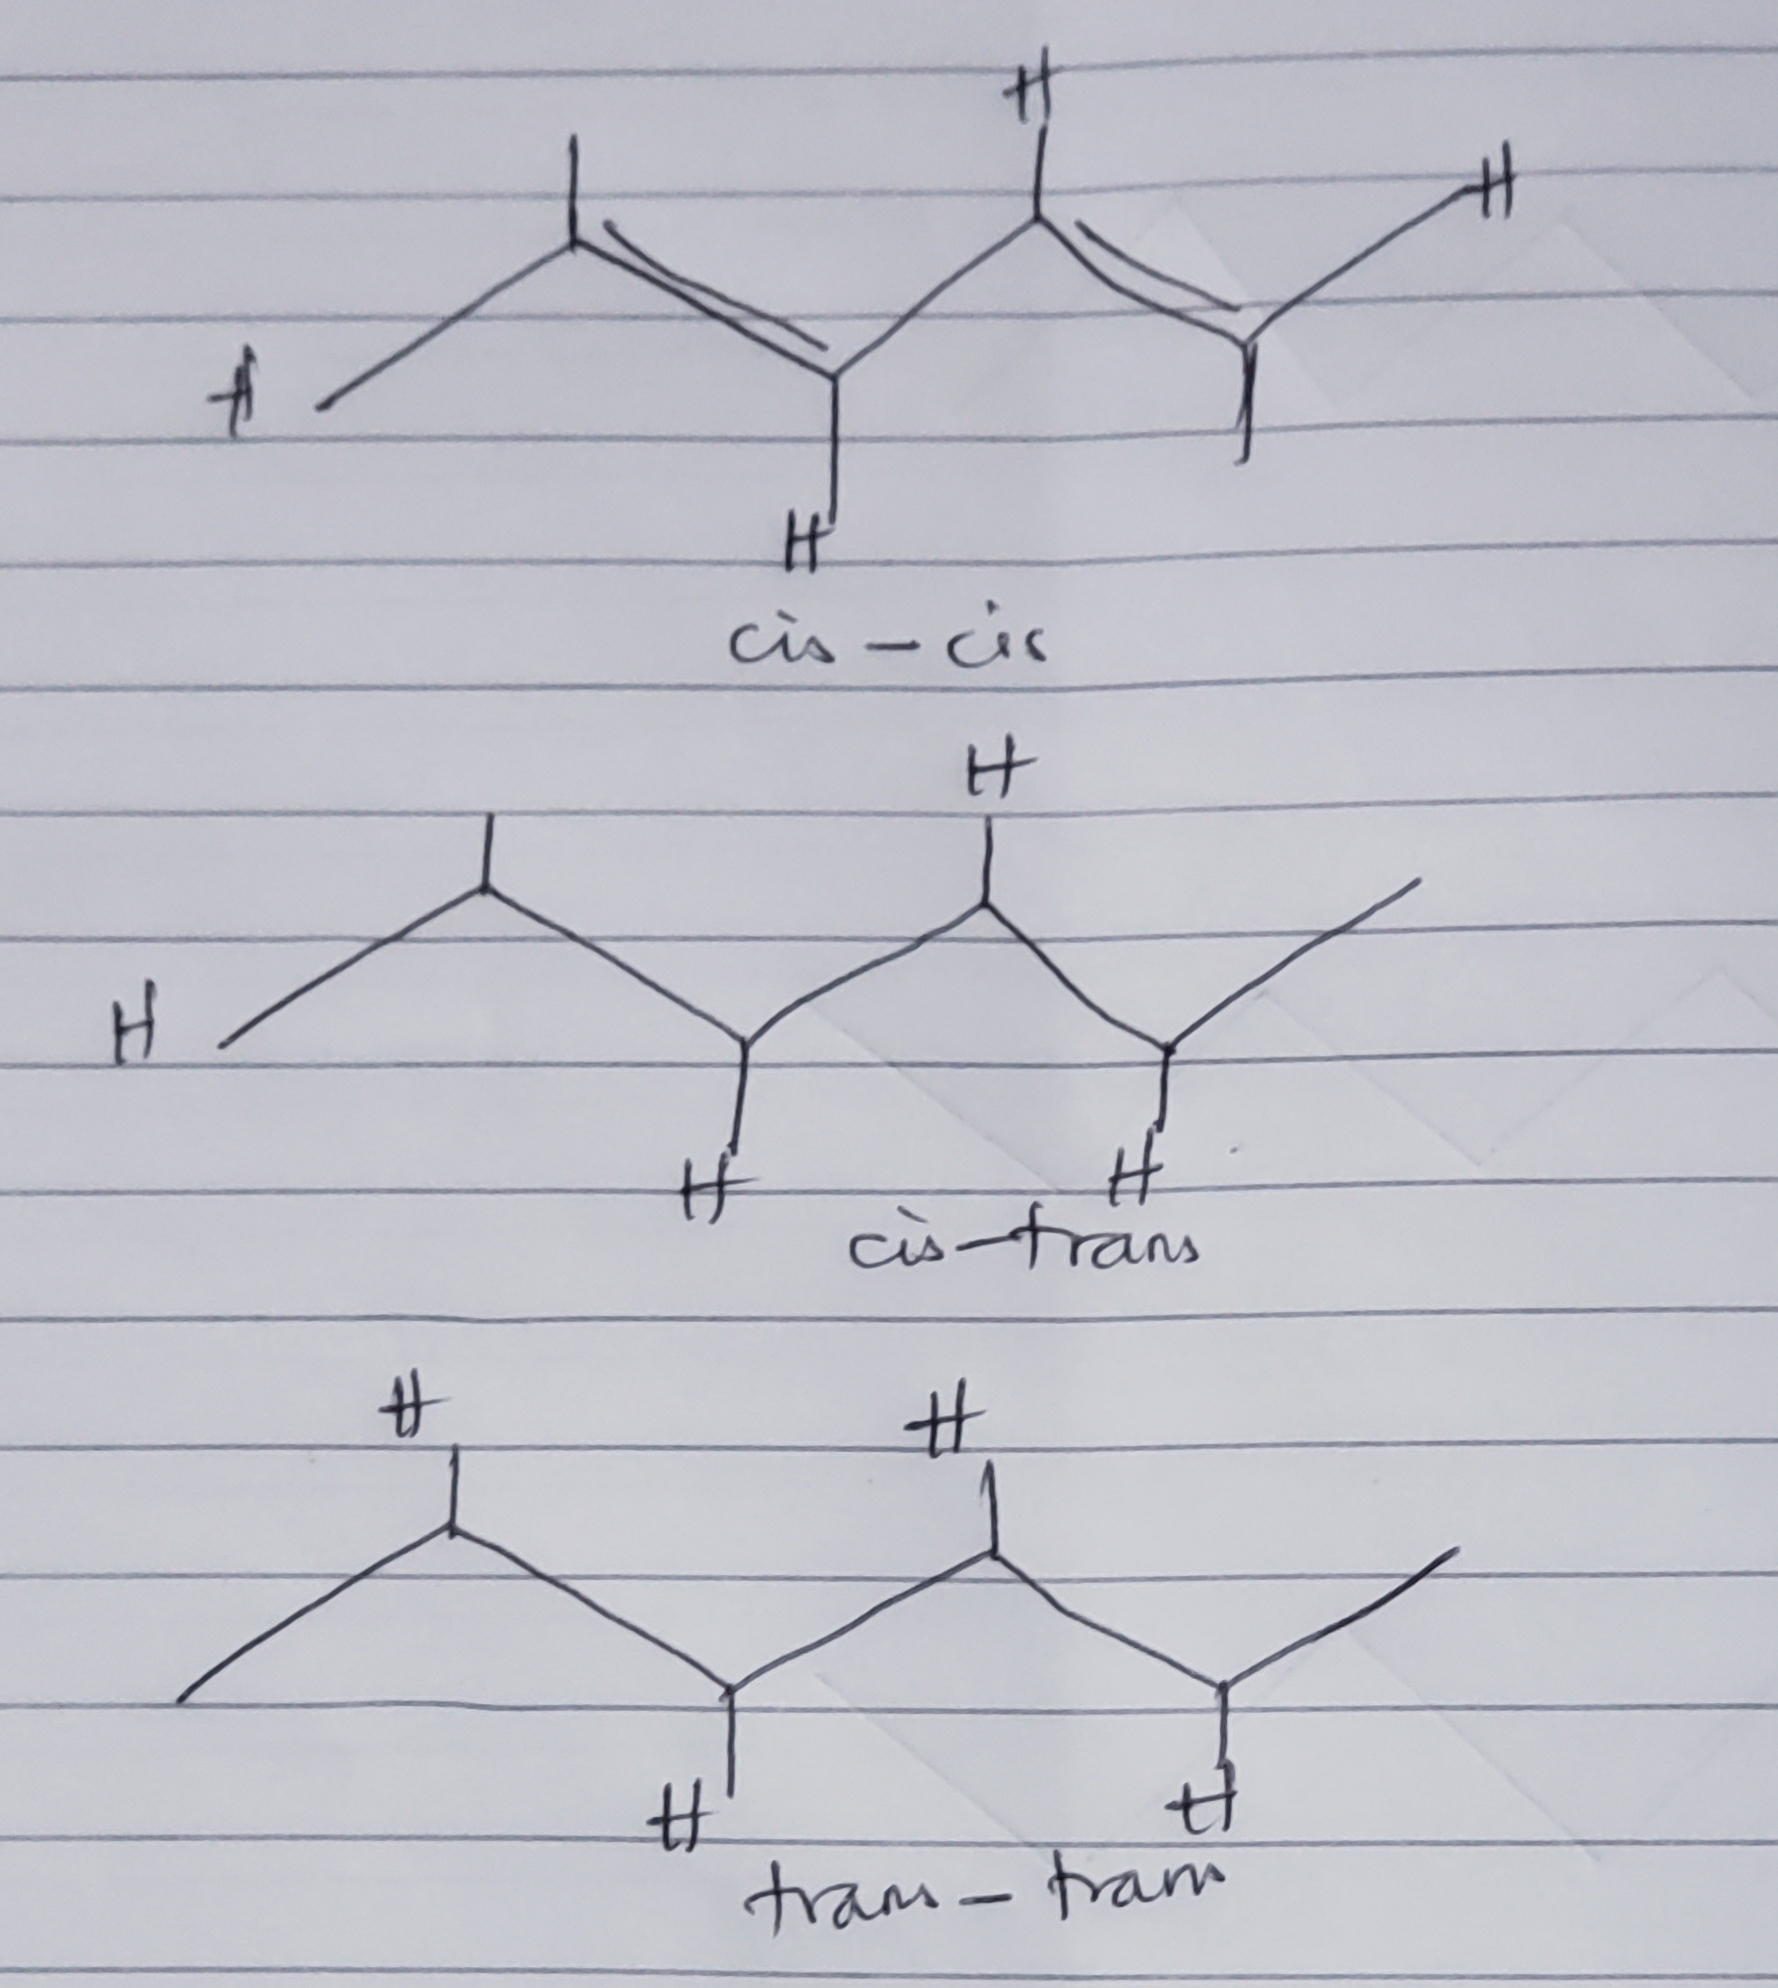 H
H
H
H
cis - cis
H
H
H
H
cis-trans
H
H
H
H
trans - trans